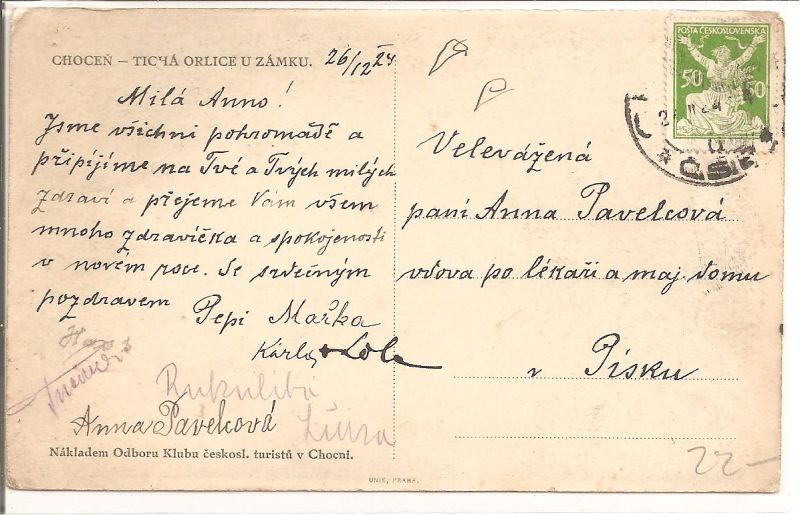 CHOCEŇ – TICHÁ ORLICE U ZÁMKU.
26/12 24
Milá Anno!
Jsme všichni pohromadě a
připíjíme na Tvé a Tvých milých
zdraví a přejeme Vám všem
mnoho zdravíčka a spokojenosti
v novém roce. Se srdečným
pozdravem
Pepi Mařka
Karla Lola
Rukulíbá
Anna Pavelcová
Nákladem Odboru Klubu českosl. turistů v Chocni.
UNIE, PRAHA.
POŠTA ČESKOSLOVENSKÁ
50 50
ČSR
Velevážená
paní Anna Pavelcová
vdova po lékaři a maj domu
v Písku
22-